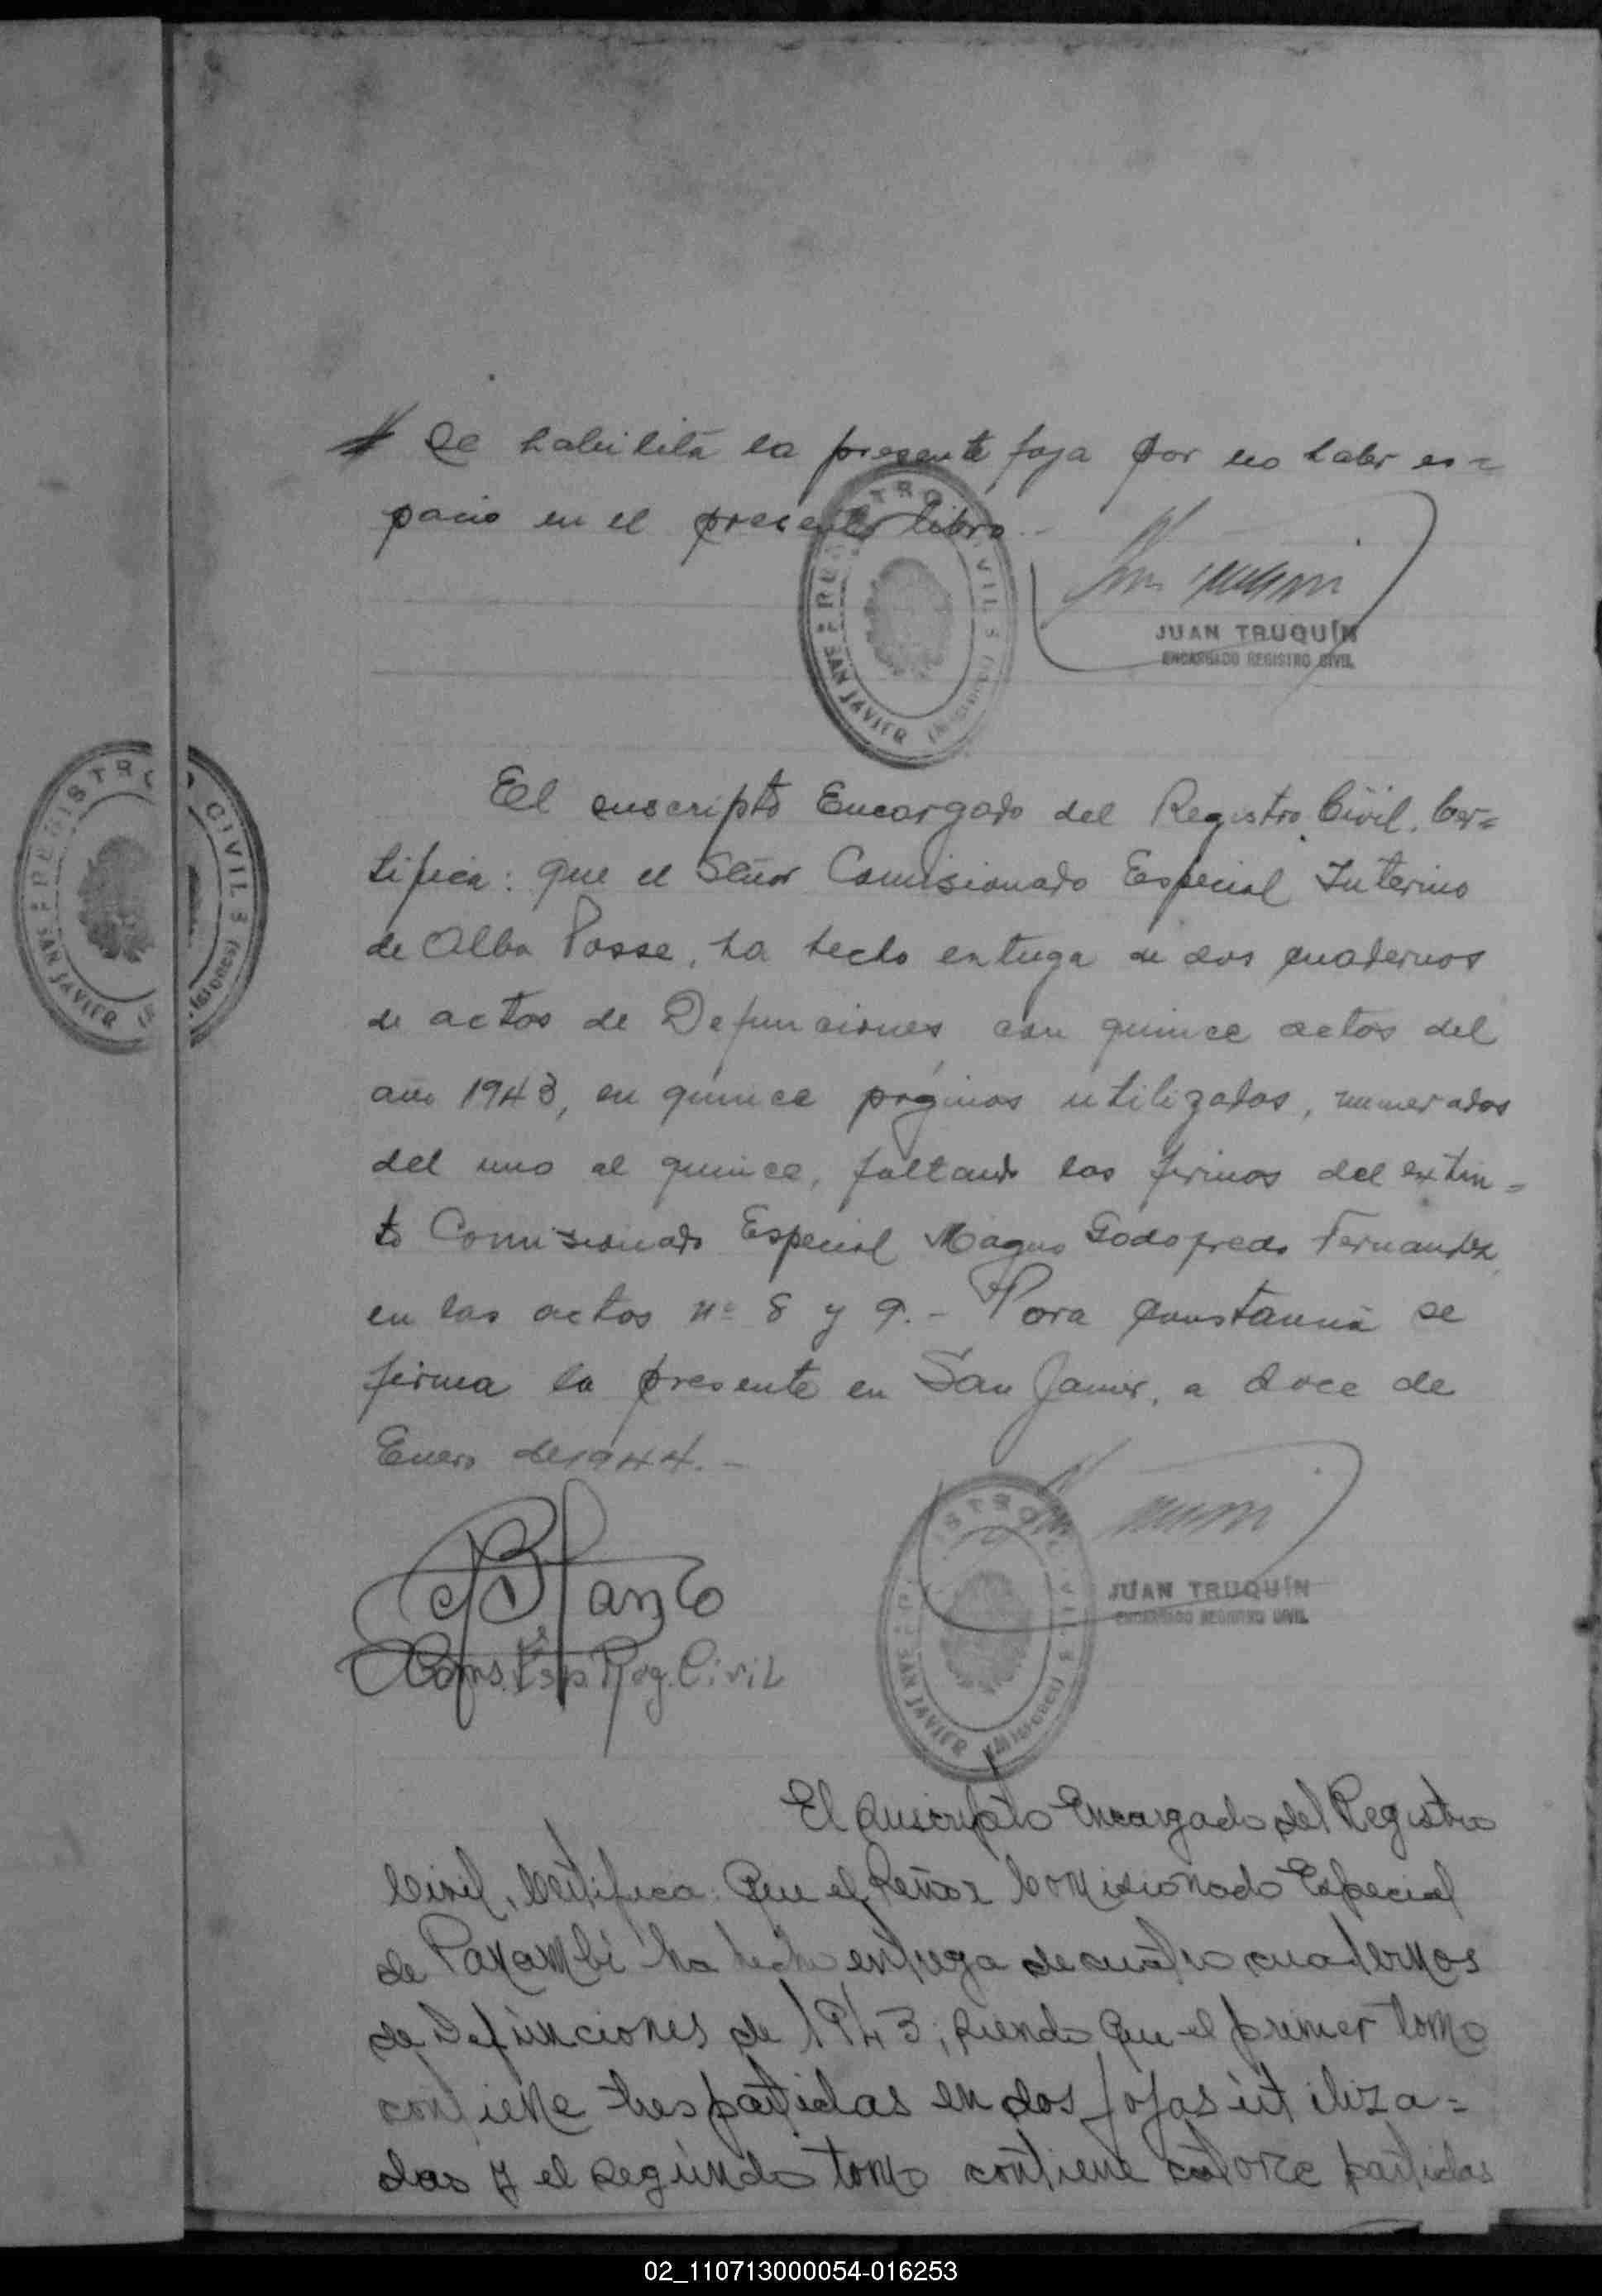 Se habilita la presente foja por no haber es=
pacio en el presente libro.-
REGISTRO CIVIL
SAN JAVIER (Misiones)
JUAN TRUQUÍN
ENCARGADO REGISTRO CIVIL
REGISTRO CIVIL
SAN JAVIER (Misiones)
El suscripto Encargado del Registro Civil. Cer=
tifica: que el Señor Comisionado Especial Interino
de Alba Posse, ha hecho entrega de dos cuadernos
de actas de Defunciones con quince actas del
año 1943, en quince páginas utilizadas, numeradas
del uno al quince, faltando las firmas del extin=
to Comisionado Especial Magno Godofredo Fernandez
en las actas nº 8 y 9.- Para constancia se
firma la presente en San Javier, a doce de
Enero de 1944.-
Blanco
Coms. Esp. Reg. Civil
REGISTRO CIVIL
SAN JAVIER (Misiones)
JUAN TRUQUÍN
ENCARGADO REGISTRO CIVIL
El suscripto Encargado del Registro
Civil, Certifica: Que el Señor Comisionado Especial
de Panambí ha hecho entrega de cuatro cuadernos
de Defunciones de 1943; siendo que el primer tomo
contiene tres partidas en dos fojas utiliza=
das y el segundo tomo contiene catorce partidas
02_110713000054-016253